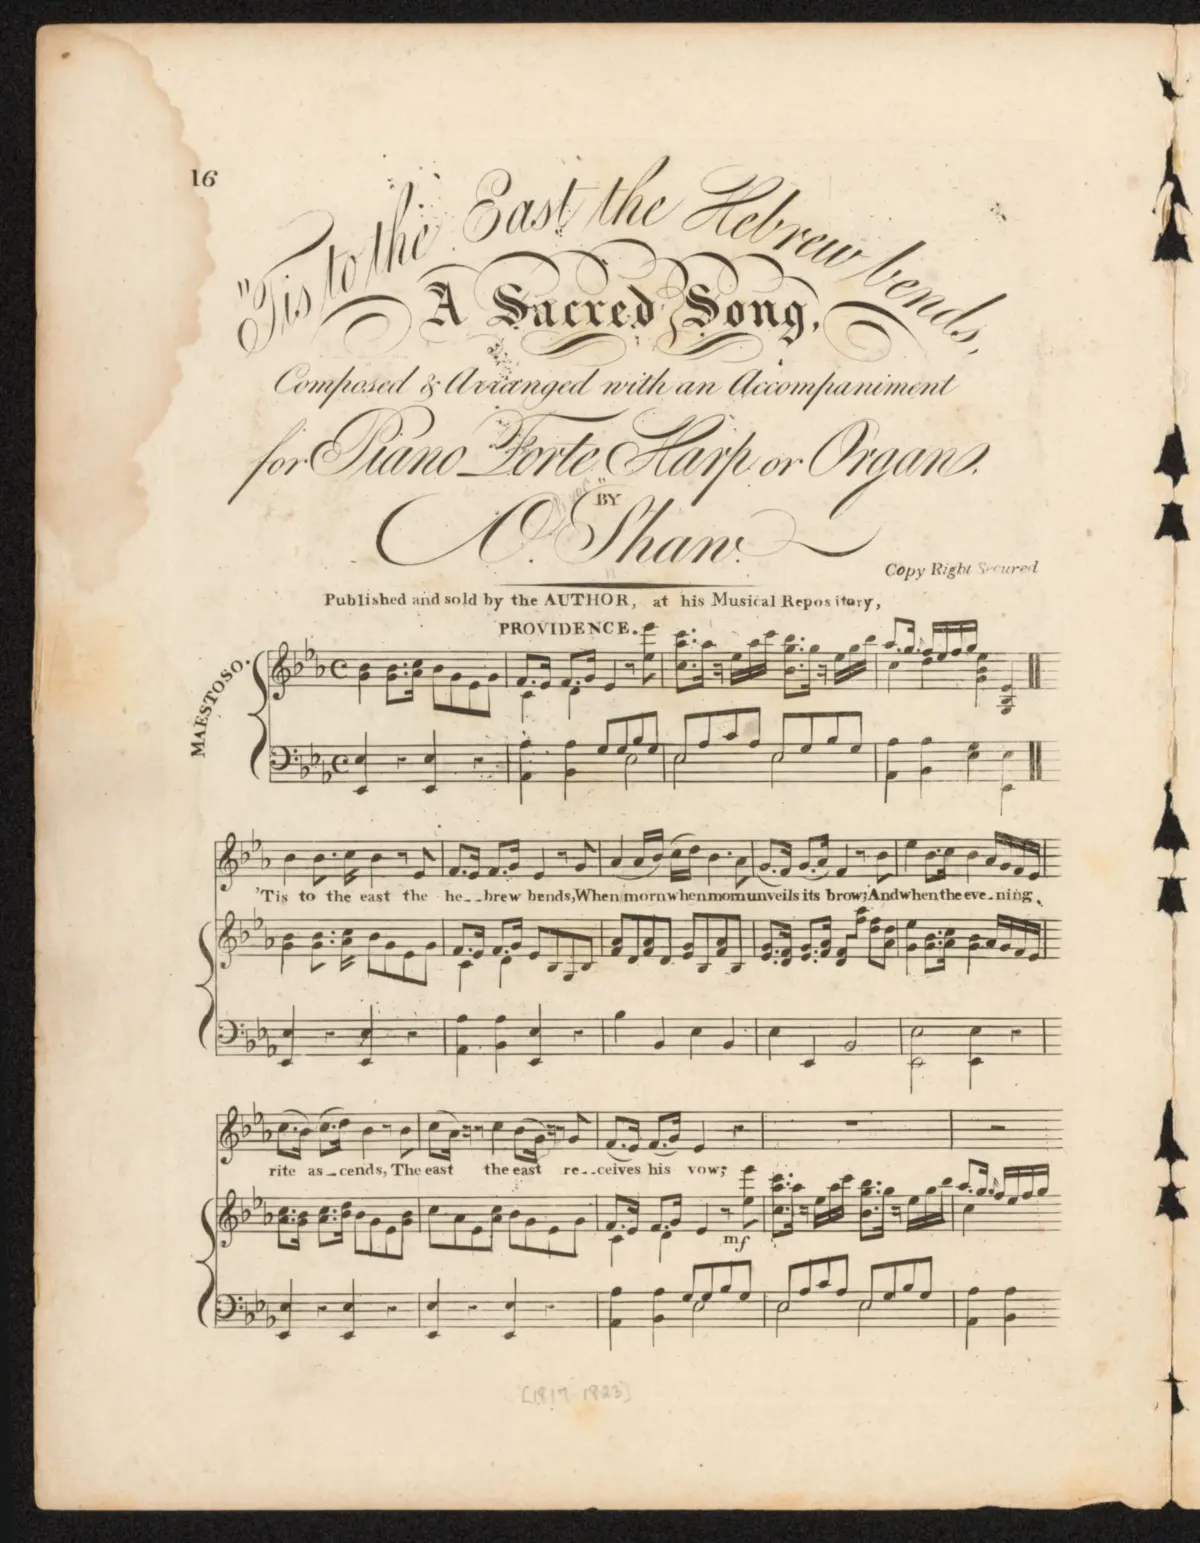 16
"Tis to the East the Hebrew bends,
A Sacred Song,
Composed & Arranged with an Accompaniment
for Piano Forte Harp or Organ.
BY
O. Shaw.
Copy Right Secured
Published and sold by the AUTHOR, at his Musical Repository,
PROVIDENCE.
MAESTOSO.
'Tis to the east the he--brew bends, When morn when morn unveils its brow; And when the eve-ning
rite as-cends, The east the east re--ceives his vow;
mf
[1817 1823]